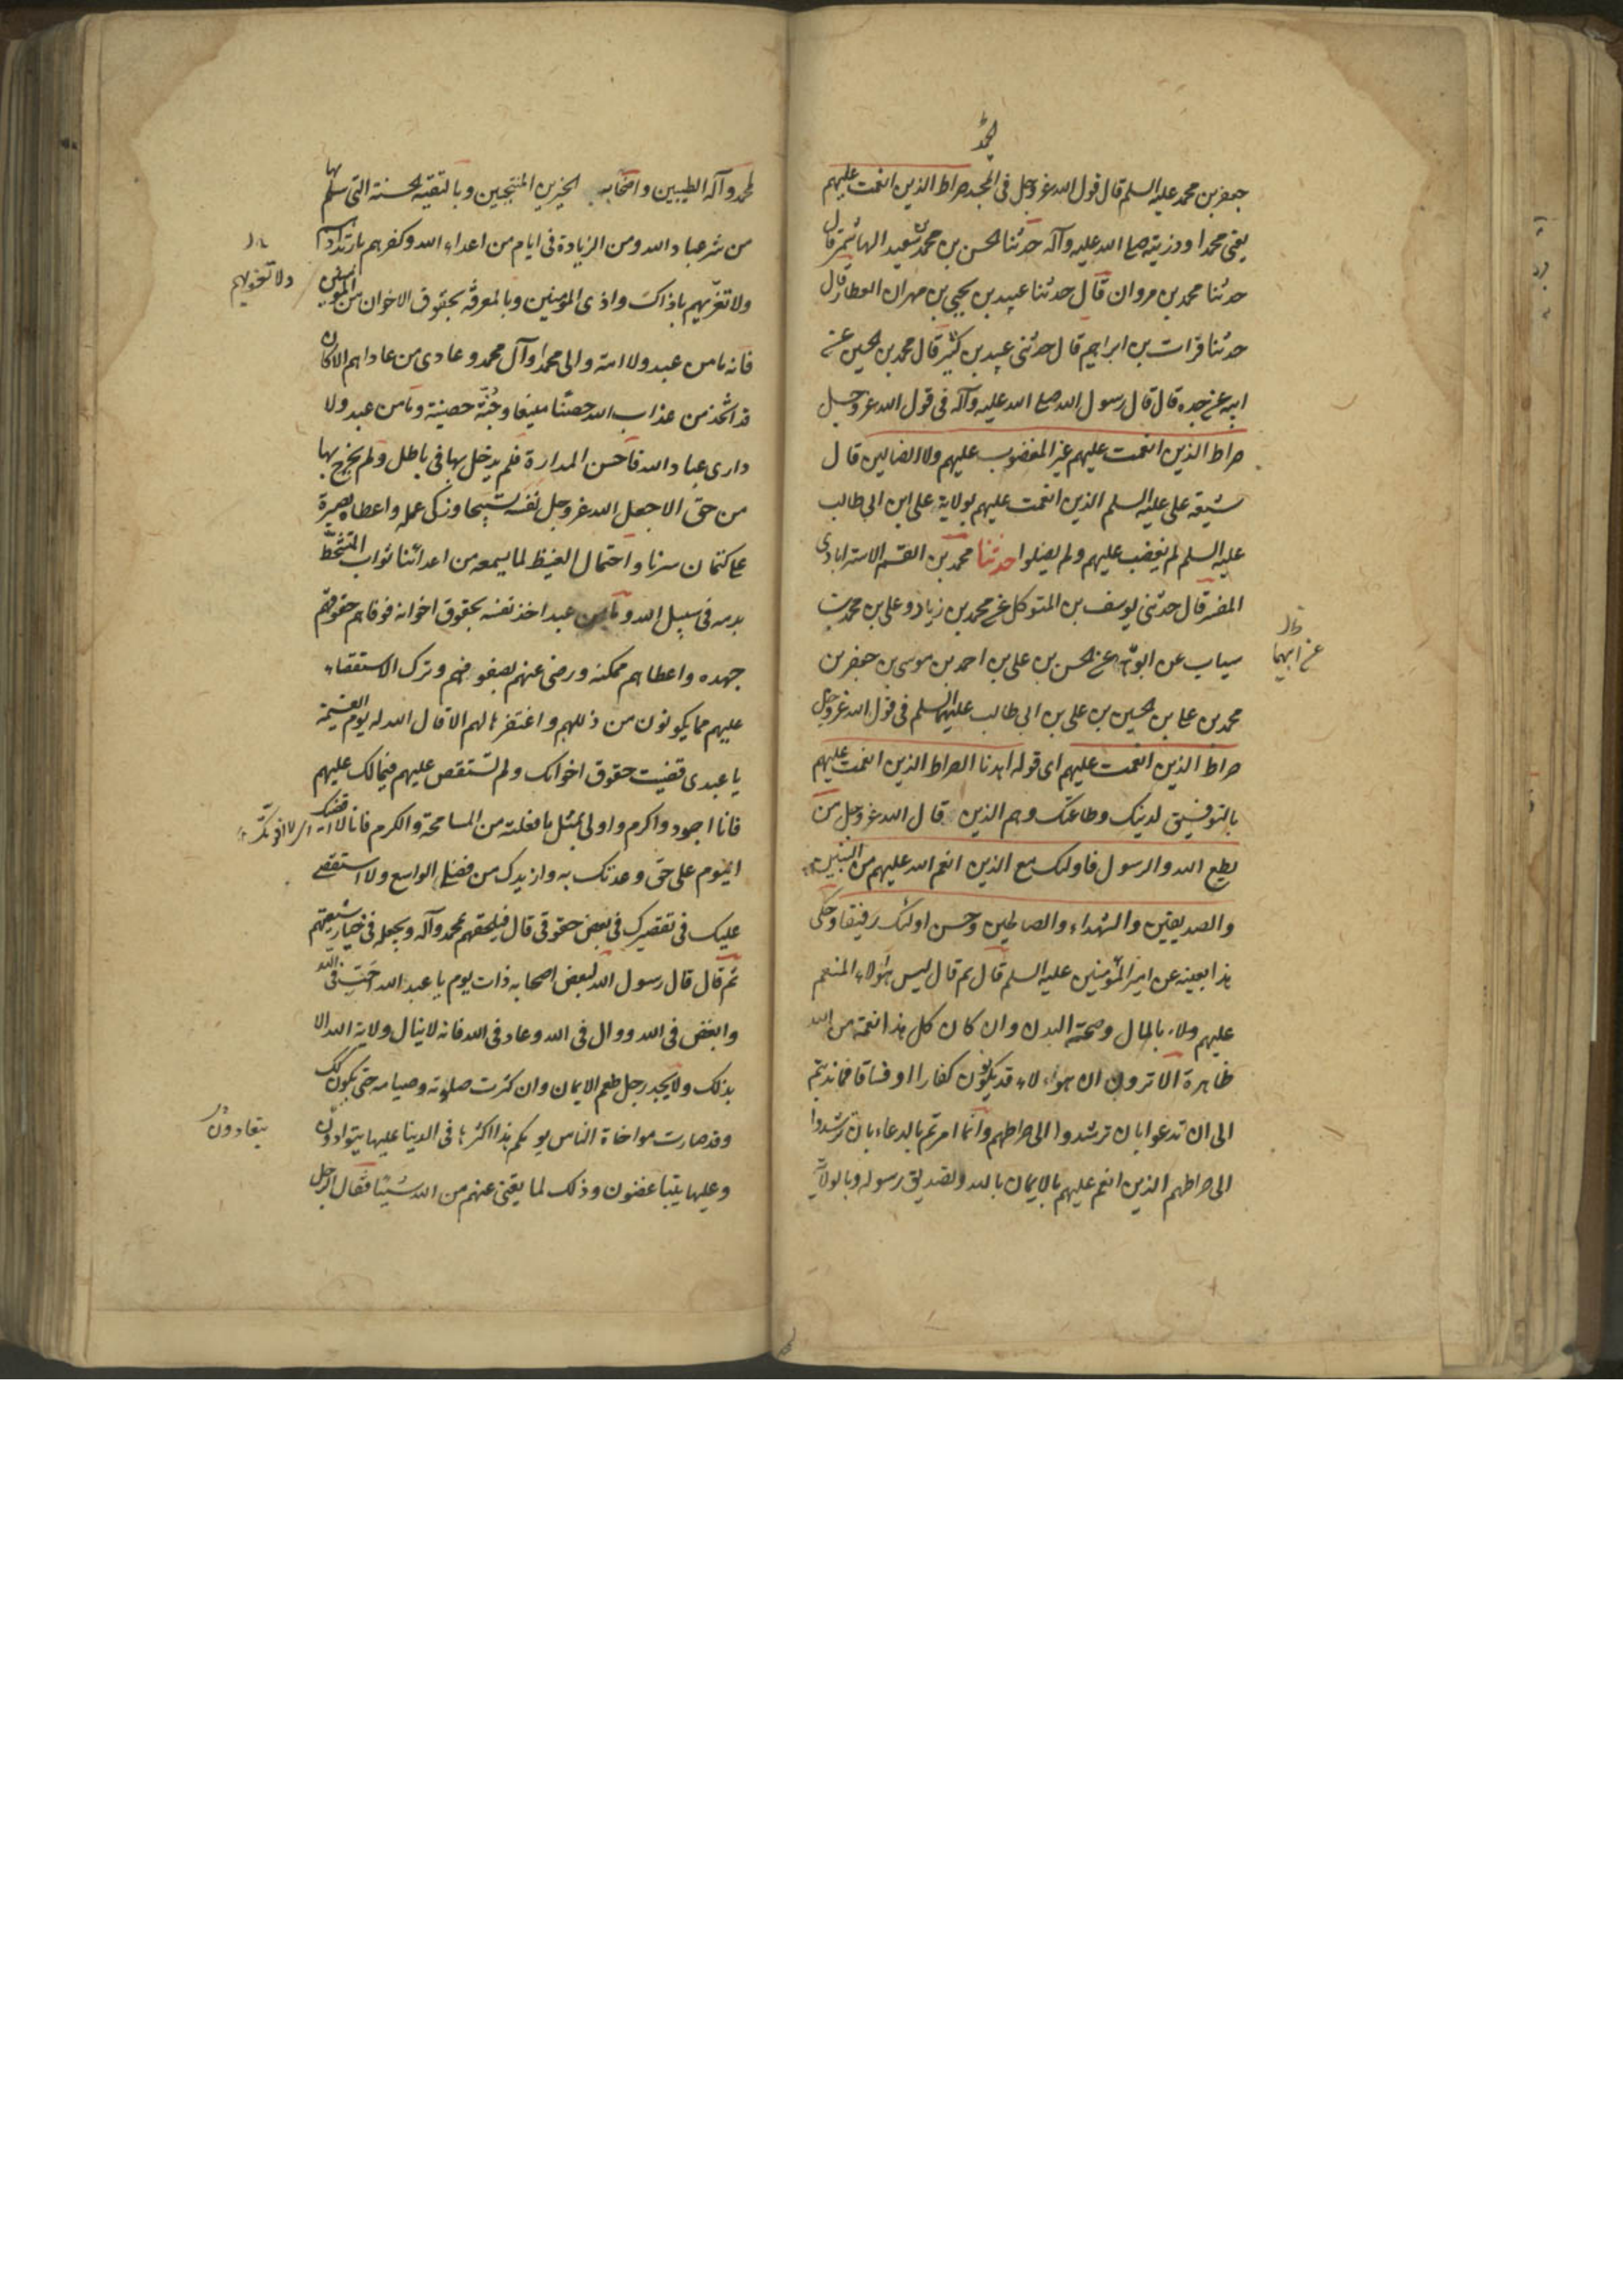 جعفر بن محمد عليه السلم قال قول الله عز وجل في الحمد صراط الذين انعمت عليهم
يعني محمدا وذريته صلى الله عليه وآله حدثنا الحسن بن محمد بن سعيد الهاشمي قال
حدثنا محمد بن مروان قال حدثنا عبيد بن يحيى بن مهران العطار قال
حدثنا فرات بن ابراهيم قال حدثنى عبيد بن كثير قال محمد بن الحسين عن
ابيه عن جده قال قال رسول الله صلى الله عليه وآله في قول الله عز وجل
صراط الذين انعمت عليهم غير المغضوب عليهم ولا الضالين قال
شيعة على عليه السلم الذين انعمت عليهم بولاية على ابن ابى طالب
عليه السلم لم يغضب عليهم ولم يضلوا حدثنا محمد بن القسم الاسترابادى
المفسر قال حدثنى يوسف بن المتوكل عن محمد بن زياد وعلى بن محمد بن
سياب عن ابويهما عن الحسن بن على بن احمد بن موسى بن جعفر بن
عن ابيهما
محمد بن على بن الحسين بن على بن ابى طالب عليهم السلم في قول الله عز وجل
صراط الذين انعمت عليهم اى قولوا اهدنا الصراط الذين انعمت عليهم
بالتوفيق لدينك وطاعتك وهم الذين قال الله عز وجل من
يطع الله والرسول فاولئك مع الذين انعم الله عليهم من النبيين
والصديقين والشهداء والصالحين وحسن اولئك رفيقا وحكى
هذا بعينه عن امير المؤمنين عليه السلم قال ثم قال ليس هؤلاء المنعم
عليهم ولاء بالمال وصحة البدن وان كان كل هذا نعمة من الله
ظاهرة الا ترون ان هؤلاء قد يكونون كفارا او فساقا فما ندبتم
الى ان تدعوا بان ترشدوا الى صراطهم وانما امرتم بالدعاء بان ترشدوا
الى صراطهم الذين انعم عليهم بالايمان بالله وتصديق رسوله وبالولاية
لمحمد وآله الطيبين واصحابه الخيرين المنتجبين وبالتقية الحسنة التى يسلم بها
من شر عباد الله ومن الزيادة في ايام من اعداء الله وكفرهم بان تداريهم
ولا تغريهم باذاك واذى المؤمنين وبالمعرفة بحقوق الاخوان من المؤمنين
ولا تغريهم
فانه ما من عبد ولا امة والى محمدا وآل محمد وعادى من عاداهم الا كان
قد اتخذ من عذاب الله حصنا منيعا وجُنّة حصينة وما من عبد ولا
دارى عباد الله فاحسن المدارة فلم يدخل بها في باطل ولم يخرج بها
من حق الا جعل الله عز وجل نفسه تسبيحا وزكى عمله واعطاه بصيرة
على كتمان سرنا واحتمال الغيظ لما يسمعه من اعدائنا ثواب المتشحط
بدمه في سبيل الله وما من عبد اخذ نفسه بحقوق اخوانه فوفاهم حقوقهم
جهده واعطاهم ممكنه ورضى عنهم بعفوهم وترك الاستقصاء
عليهم مما يكونون من ذللهم واغتفرها لهم الا قال الله له يوم القيمة
يا عبدى قضيت حقوق اخوانك ولم تستقص عليهم فيما لك عليهم
فانا اجود واكرم واولى بمثل ما فعلته من المسامحة والكرم فانا
اليوم على حق وعدتك به وازيدك من فضلى الواسع ولا استقصى
عليك في تقصيرك في بعض حقوقى قال فيلحقهم بمحمد وآله ويجعله في خيار شيعتهم
ثم قال قال رسول الله لبعض اصحابه ذات يوم يا عبد الله احبب في الله
وابغض في الله ووال في الله وعاد في الله فانه لا ينال ولاية الله الا
بذلك ولا يجد رجل طعم الايمان وان كثرت صلوته وصيامه حتى يكون كذلك
وقد صارت مواخاة الناس يومكم هذا اكثرها في الدينا عليها يتوادون
يتعادون
وعليها يتباغضون وذلك لما يغنى عنهم من الله شيئا فقال الرجل